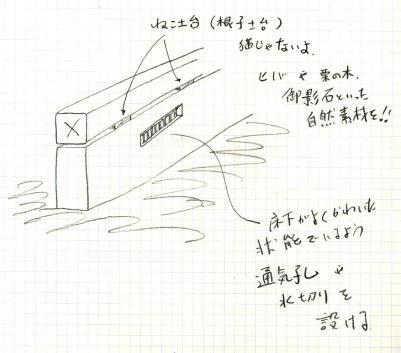 ねこ土台（根子土台）
猫じゃないよ.
ヒバや栗の木.
御影石といった
自然素材を!!
床下がよくかわいた
状態でいるよう
通気孔や
水切りを
設ける